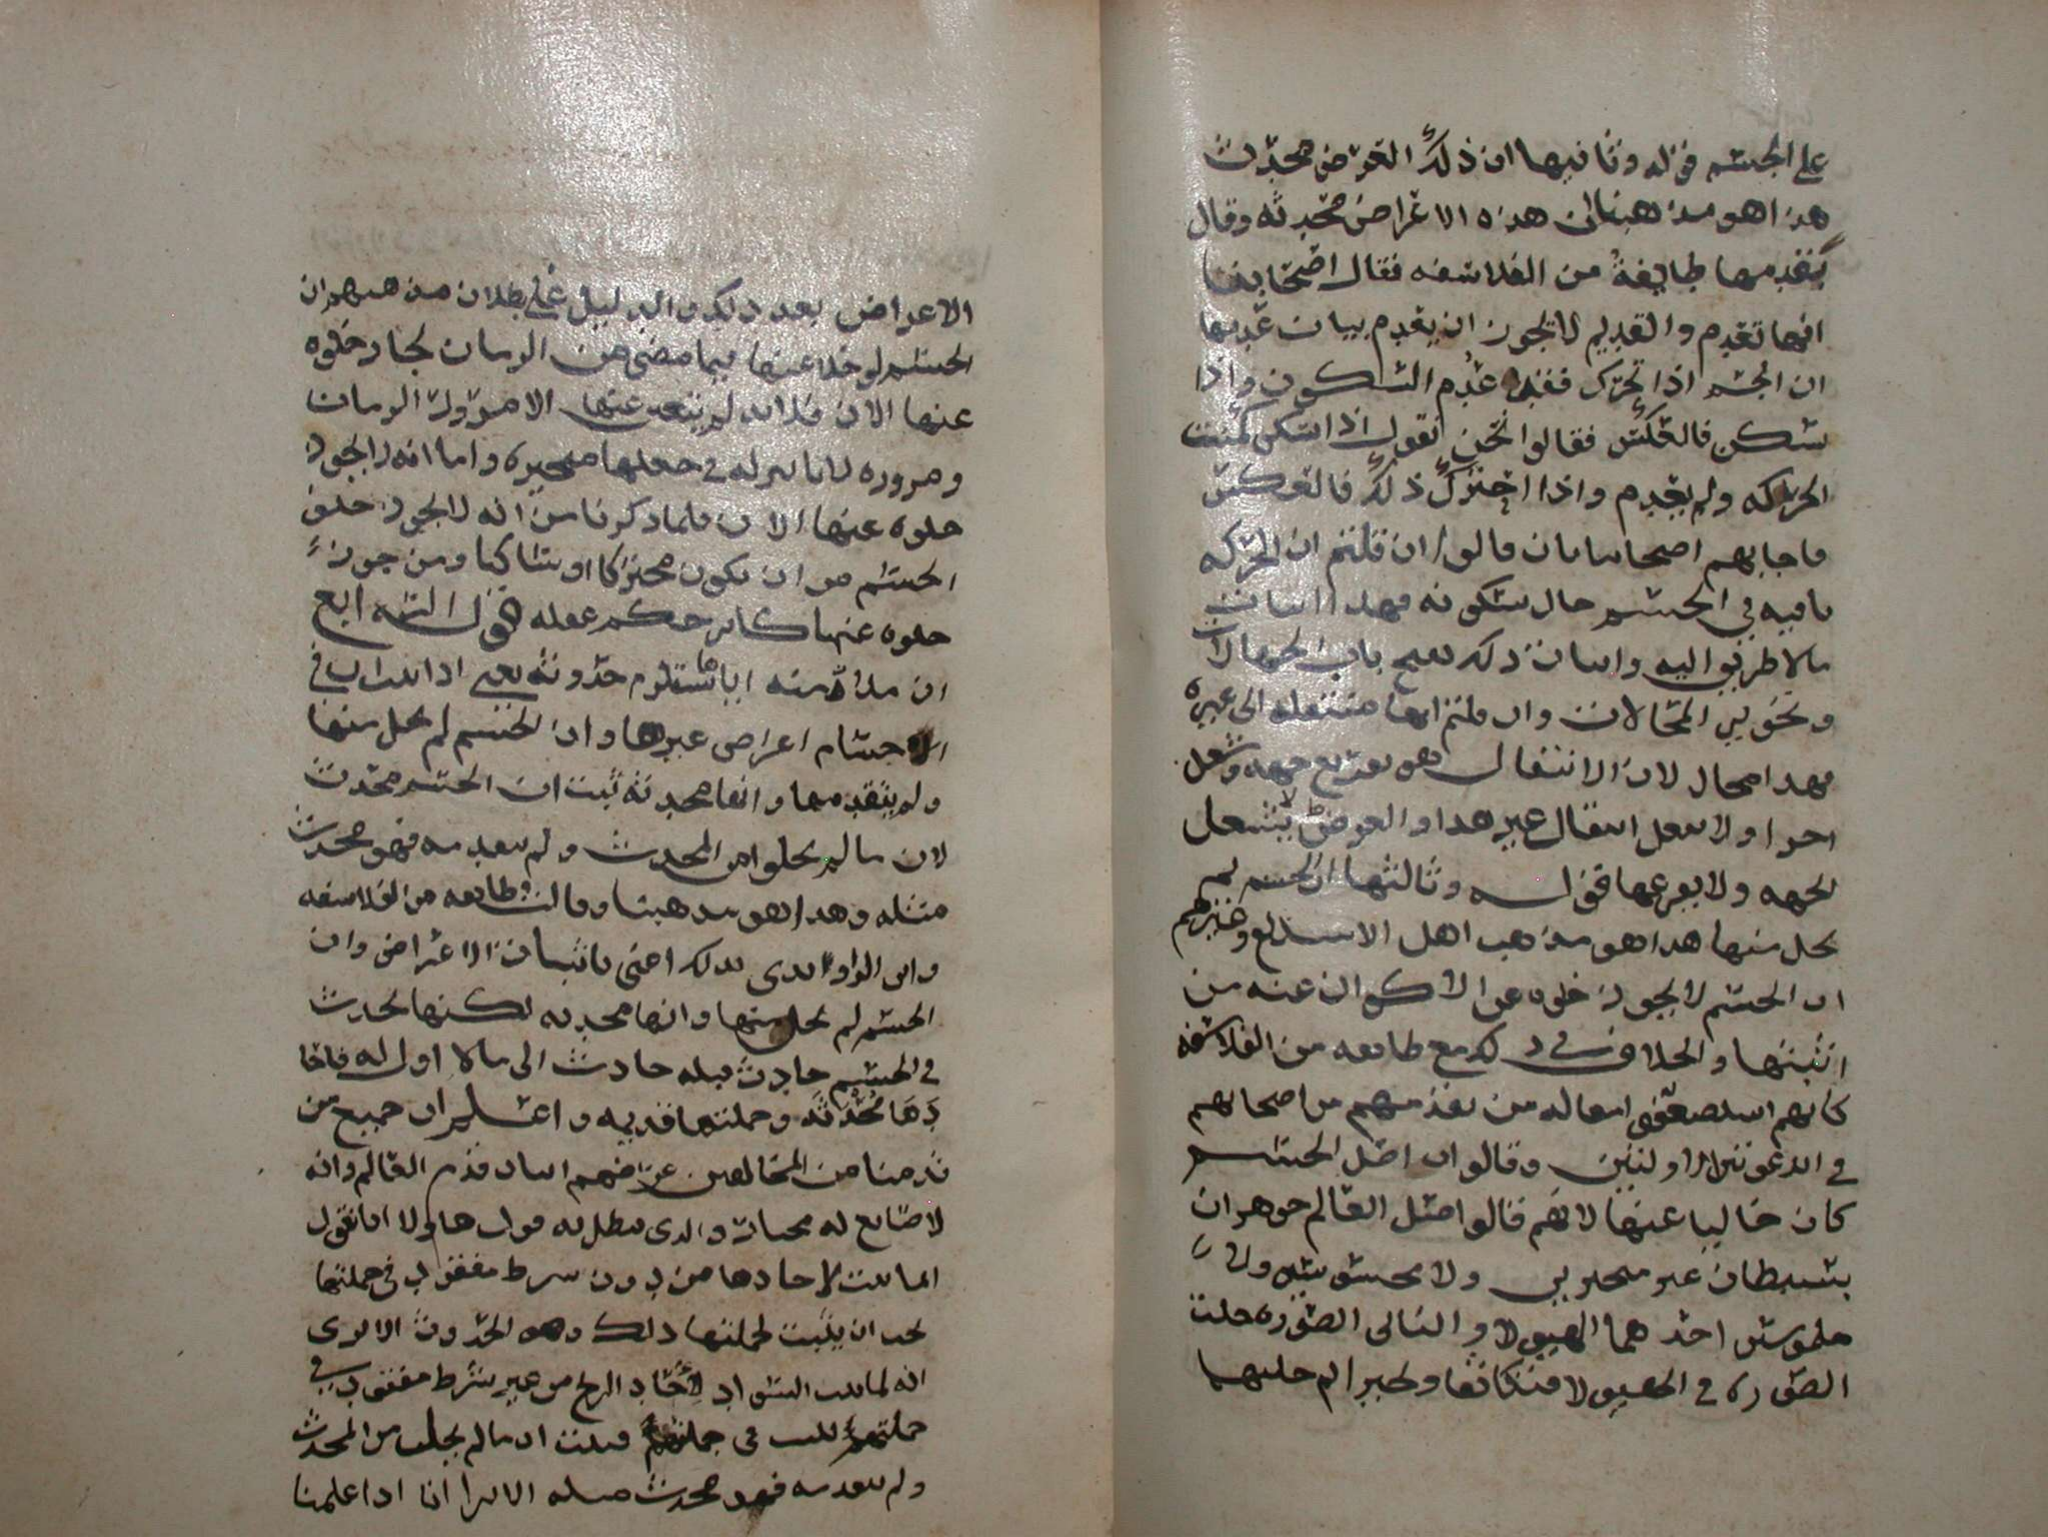 على الجسم قوله وثانيها ان ذلك العرض محدث
هذا هو مذهبنا ان هذه الاعراض محدثه وقال
بقدمها طايفة من الفلاسفه فقال اصحابنا
انها تعدم والقديم لا يجوز ان يعدم بيان عدمها
ان الجسم اذا تحرك فقد عدم السكون واذا
سكن فالعكس فقالوا نحن نقول اذا سكن كمنت
الحركه ولم تعدم واذا احترك ذلك فالعكس
فاجابهم اصحابنا بان قالوا ان قلتم ان الحركه
باقيه في الجسم حال سكونه فهذا اثبات
مالا طريق اليه واثبات ذلك يفتح باب الجهالات
وتجويز المحالات وان قلتم انها منتقله الى غيره
فهذا محال لان الانتقال هو تفريغ جهه وشغل
اخرا ولا يعقل انتقال غير هذا والعرض لا يشغل
الجهه ولا يفرغها قوله وثالثها ان الجسم لم
يخل منها هذا هو مذهب اهل الاسلام وغيرهم
ان الجسم لا يجوز خلوه عن الاكوان عند من
اثبتها والخلاف في ذلك مع طايفه من الفلاسفه
كانهم استضعفوا مقاله من تقدمهم من اصحابهم
في الدعوتين الاولتين وقالوا ان اصل الجسم
كان خاليا عنها لانهم قالوا اصل العالم جوهران
بسيطان غير متحيزين ولا محسوسين ولا
ملموسين احدهما الهيولا والثاني الصوره حلت
الصوره في الهيولا فتكاثفا وتحيزا ثم حلتهما
الاعراض بعد ذلك والدليل على بطلان مذهبهم ان
الجسم لو خلا عنها فيما مضى من الزمان لجاز خلوه
عنها الان فلانه لم يتغير عنها الا مرور الزمان
ومروره لا تاثير له في جعلها متحيزه واما انه لا يجوز
خلوه عنها الان فلما ذكرنا من انه لا يجوز خلو
الجسم من ان يكون متحركا او ساكنا ومن جوز
خلوه عنها كابر حكم عقله قوله الرابع
ان ملازمته اياها تستلزم حدوثه يعني اذا ثبت ان في
الاجسام اعراض غيرها وان الجسم لم يخل منها
ولم يتقدمها وانها محدثه ثبت ان الجسم محدث
لان ما لم يخلوا من المحدث ولم يتقدمه فهو محدث
مثله وهذا هو مذهبنا وقالت طايفه من الفلاسفه
وابن الراوندي بذلك اعني باثبات الاعراض وان
الجسم لم يخل منها وانها محدثه لكنها تحدث
في الجسم حادث قبله حادث الى مالا اول له فاحا
دها محدثه وجملتها قديمه واعلم ان جميع من
قدمنا من المخالفين غرضهم اثبات قدم العالم وانه
لا صانع له مختار والذي يبطل به قول هاولا انا نقول
لما ثبت لاحادها من دون شرط مفقود في جملتها
يجب ان يثبت لجملتها ذلك وهو الحدوث الا ترى
انه لما ثبت السواد لاحاد الزنج من غير شرط مفقود في
جملتهم ثبت في جملتهم فثبت ان ما لم يخل من المحدث
ولم يتقدمه فهو محدث مثله الا ترا انا اذا علمنا